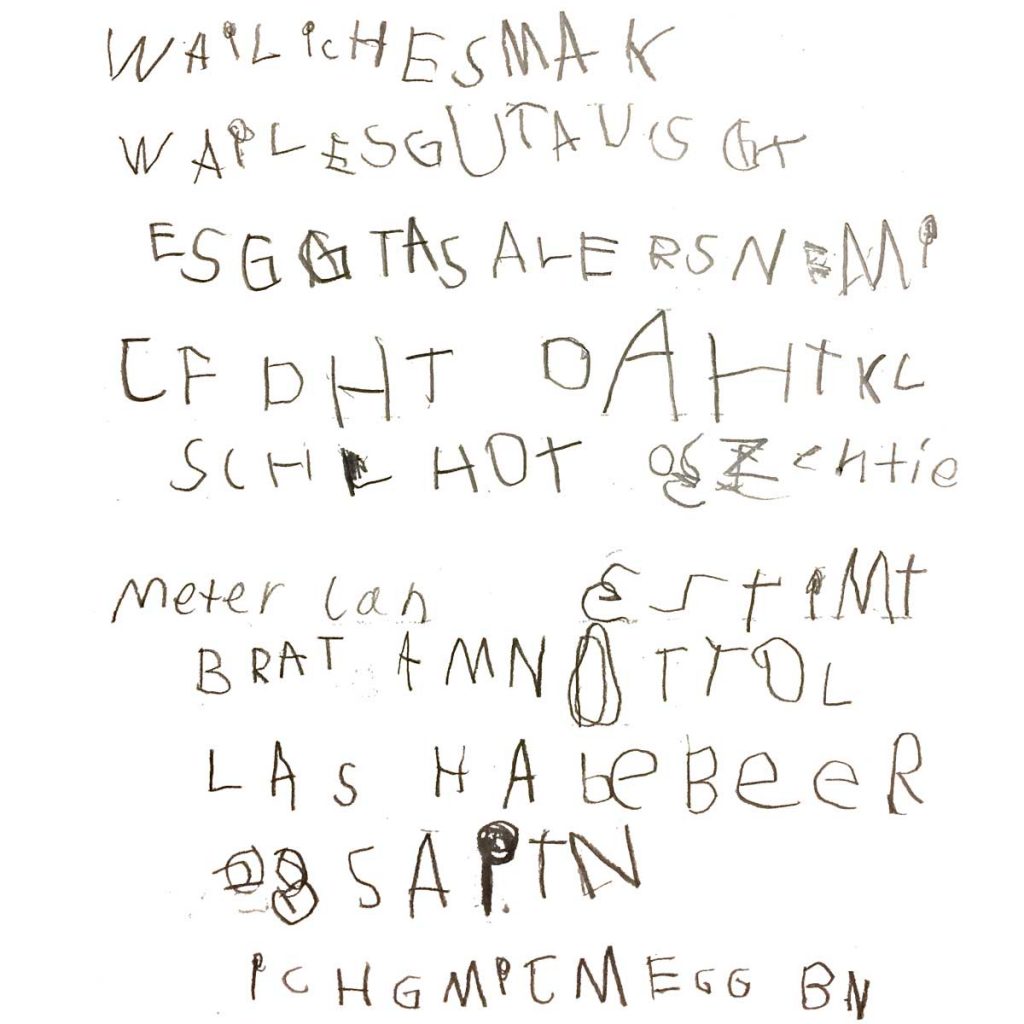 WAiLiCHESMAK
WAiLESGUTAUSGT
ESGGTASALERSNEMi
CFDHT OAHTKL
SCHL HOT Zentie
meter lan ESTiMt
BRAT AMNOTTOL
LAS HAbeBeeR
SAiTN
iCHGMiTMEGG BN